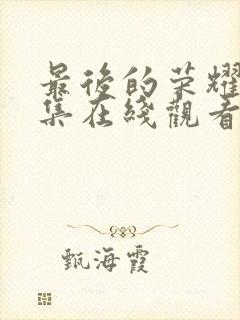 最後的荣耀
集在綫觀看
甄海霞